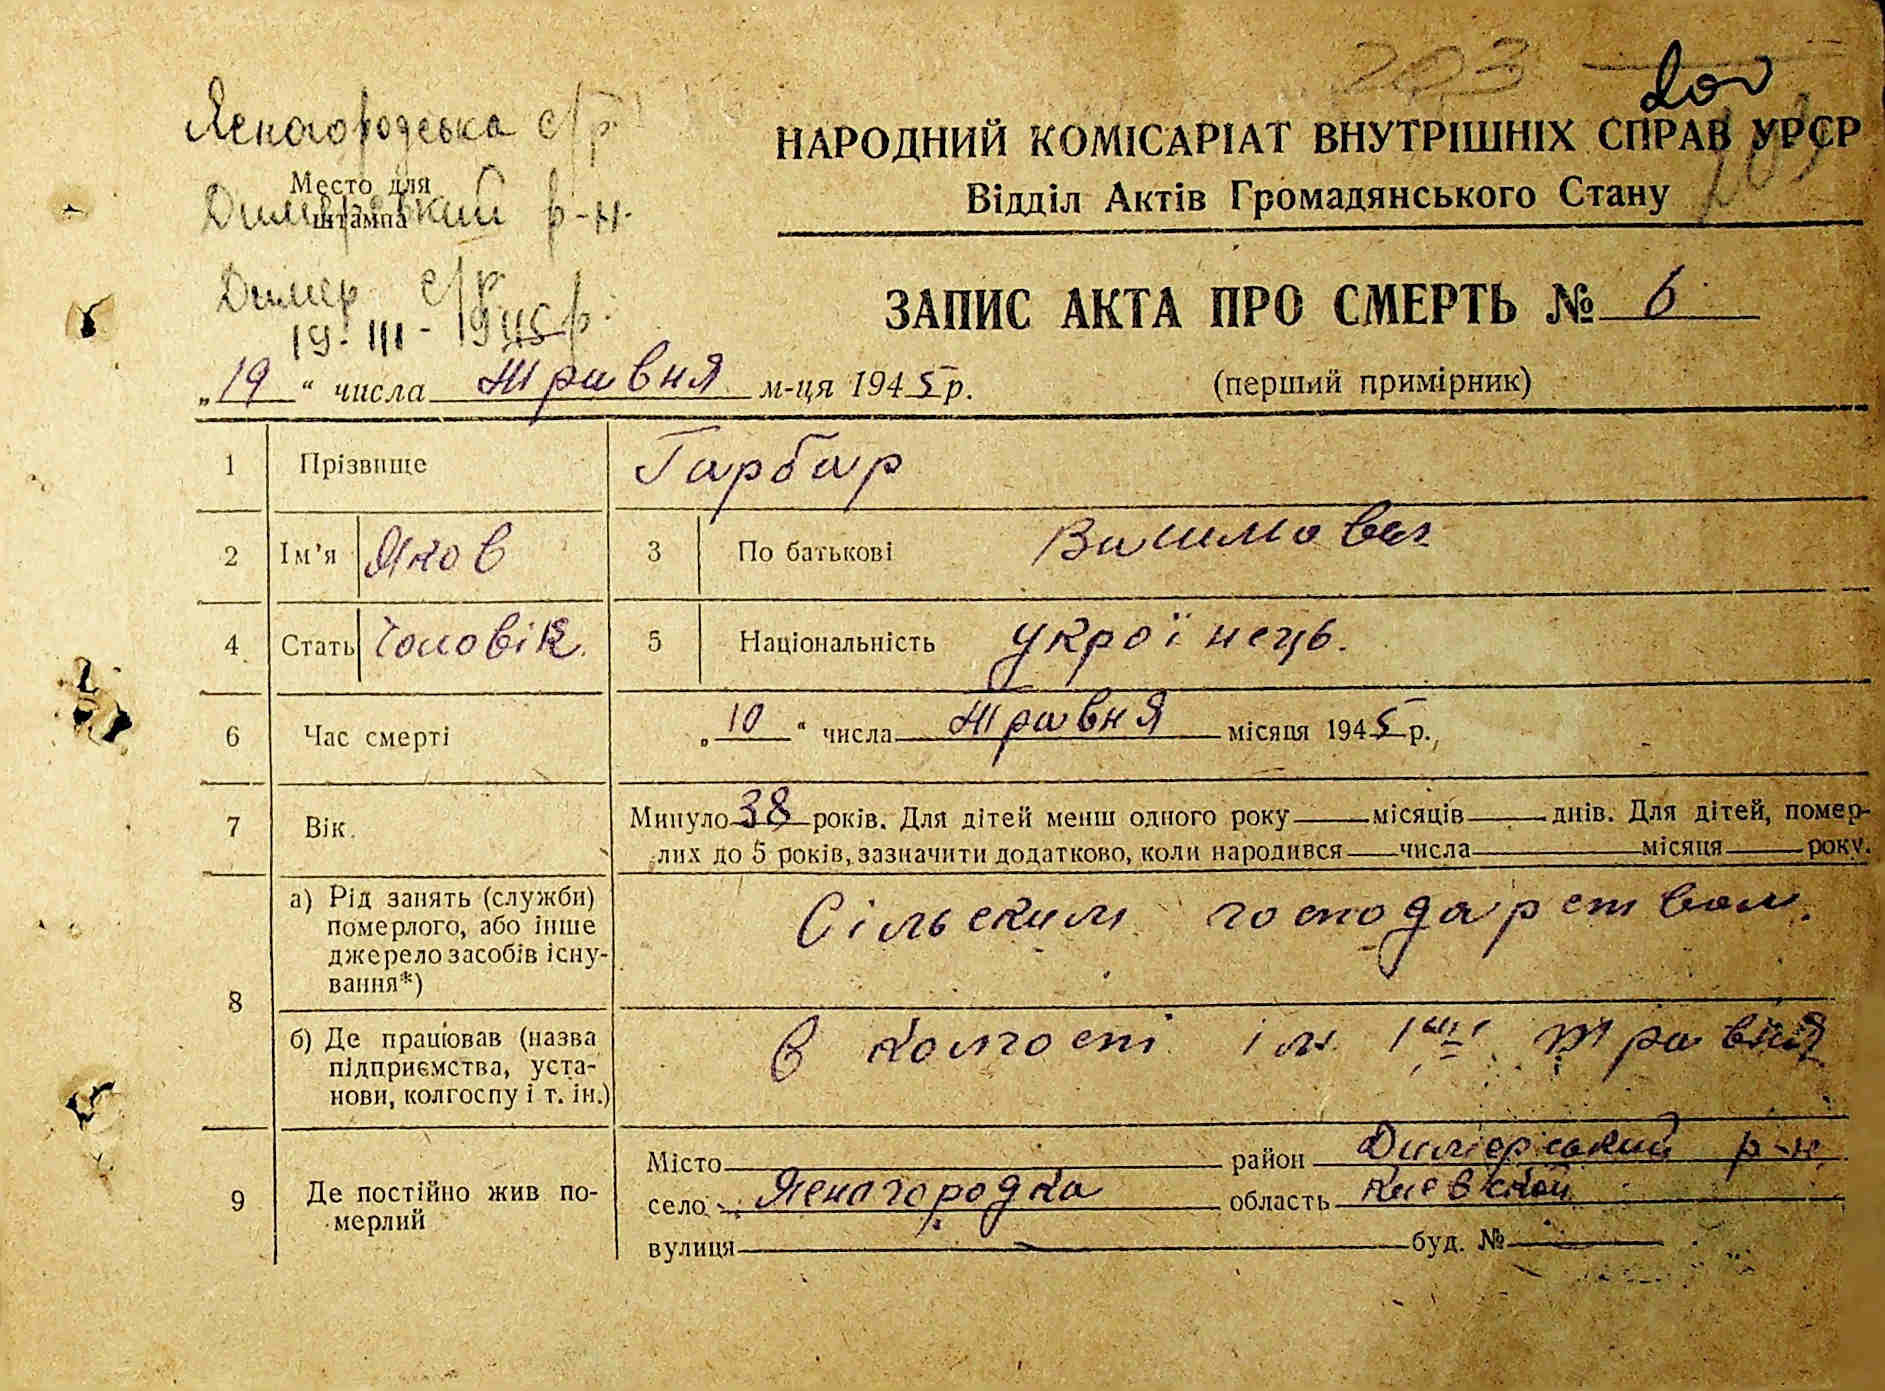 203
Ясногородська с/р
НАРОДНИЙ КОМІСАРІАТ ВНУТРІШНІХ СПРАВ УРСР
Место для
штампа
Димерський р-н.
Відділ Актів Громадянського Стану
Димер с/к
19-III-1945 р.
ЗАПИС АКТА ПРО СМЕРТЬ № 6
„19“ числа Травня м-ця 1945 р.
(перший примірник)
1 Прізвище Гарбар
2 Ім'я Яков 3 По батькові
4 Стать Чоловік. 5 Національність украінець.
6 Час смерті „10“ числа Травня місяця 1945 р.,
7 Вік. Минуло 38 років. Для дітей менш одного року місяців днів. Для дітей, помер-
лих до 5 років, зазначити додатково, коли народився числа місяця року.
8 а) Рід занять (служби)
померлого, або інше
джерело засобів існу-
вання*)
Сільским господарством.
б) Де працював (назва
підприємства, уста-
нови, колгоспу і т. ін.)
в колгоспі ім. 1го Травня
9 Де постійно жив по-
мерлий
Місто район Димерський р-н
село Ясногородка область Киевской
вулиця буд. №